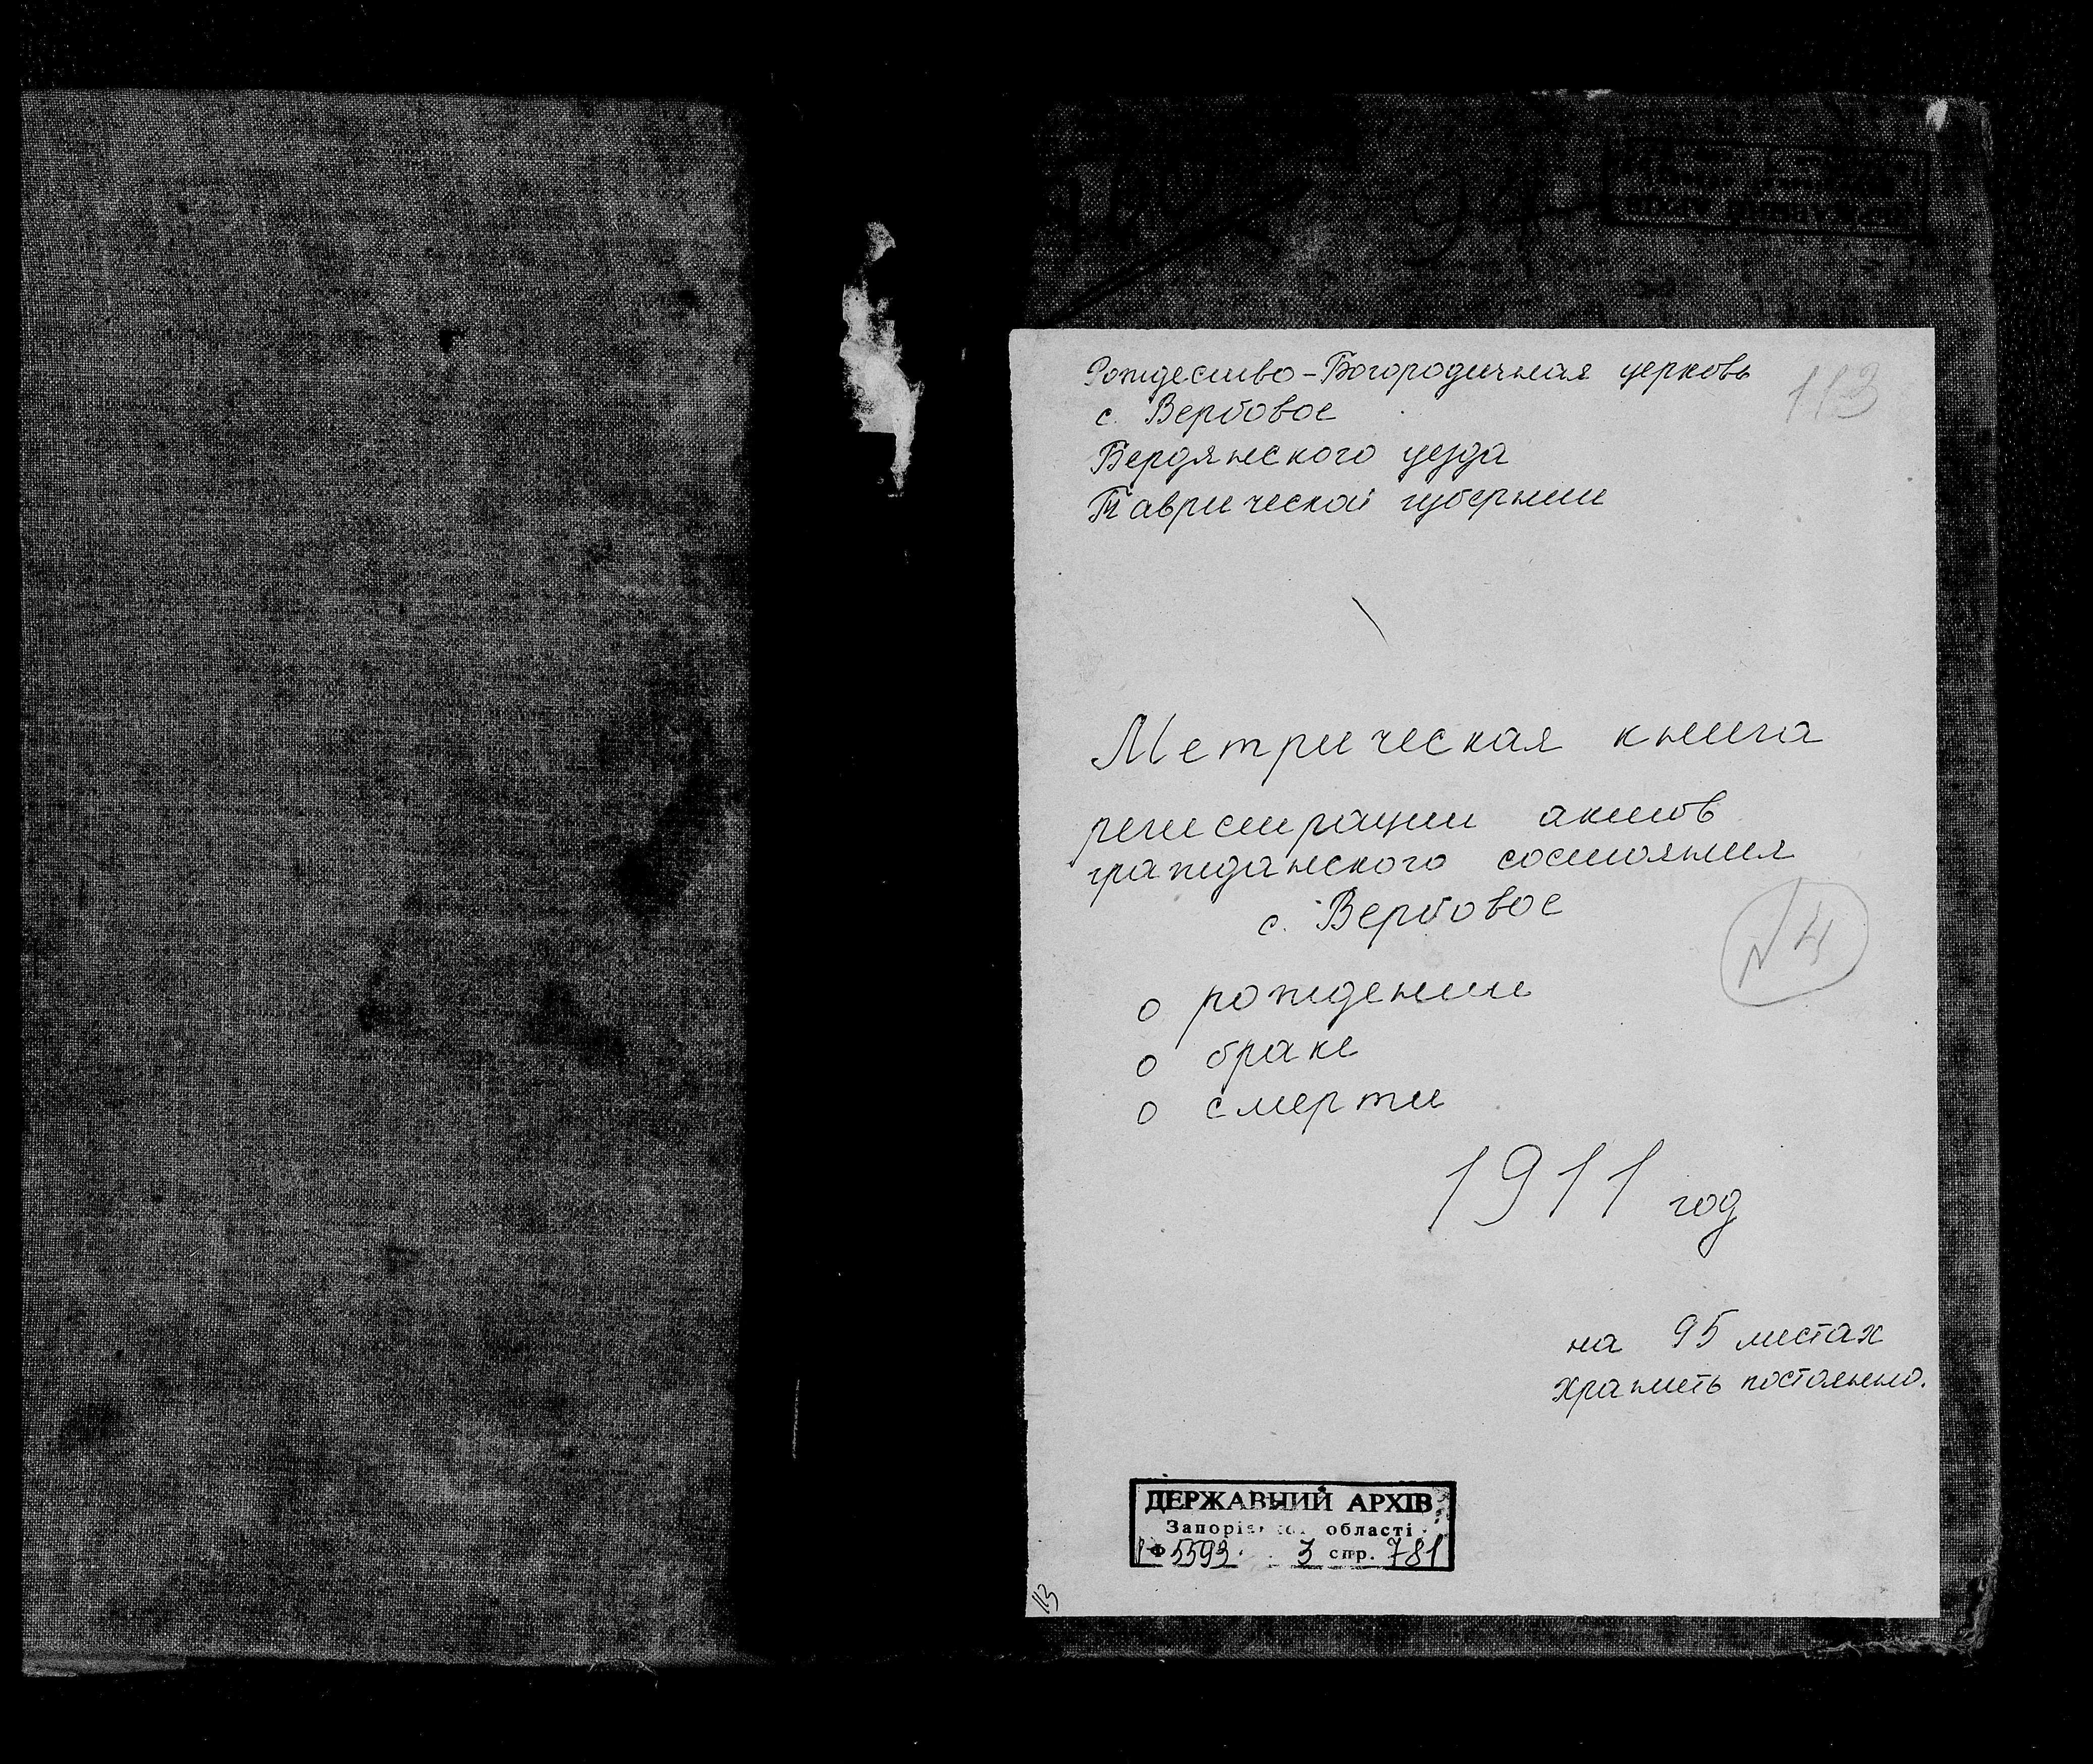 113
Рождество-Богородичная церковь
с. Вербовое
Бердянского уезда
Таврической губернии
Метрическая книга
регистрации актов
гражданского состояния
с. Вербовое
N 4
о рождении
о браке
о смерти
1911 год
на 95 листах
хранить постоянно.
ДЕРЖАВНИЙ АРХІВ
області
Ф 5593 3 спр. 781
113